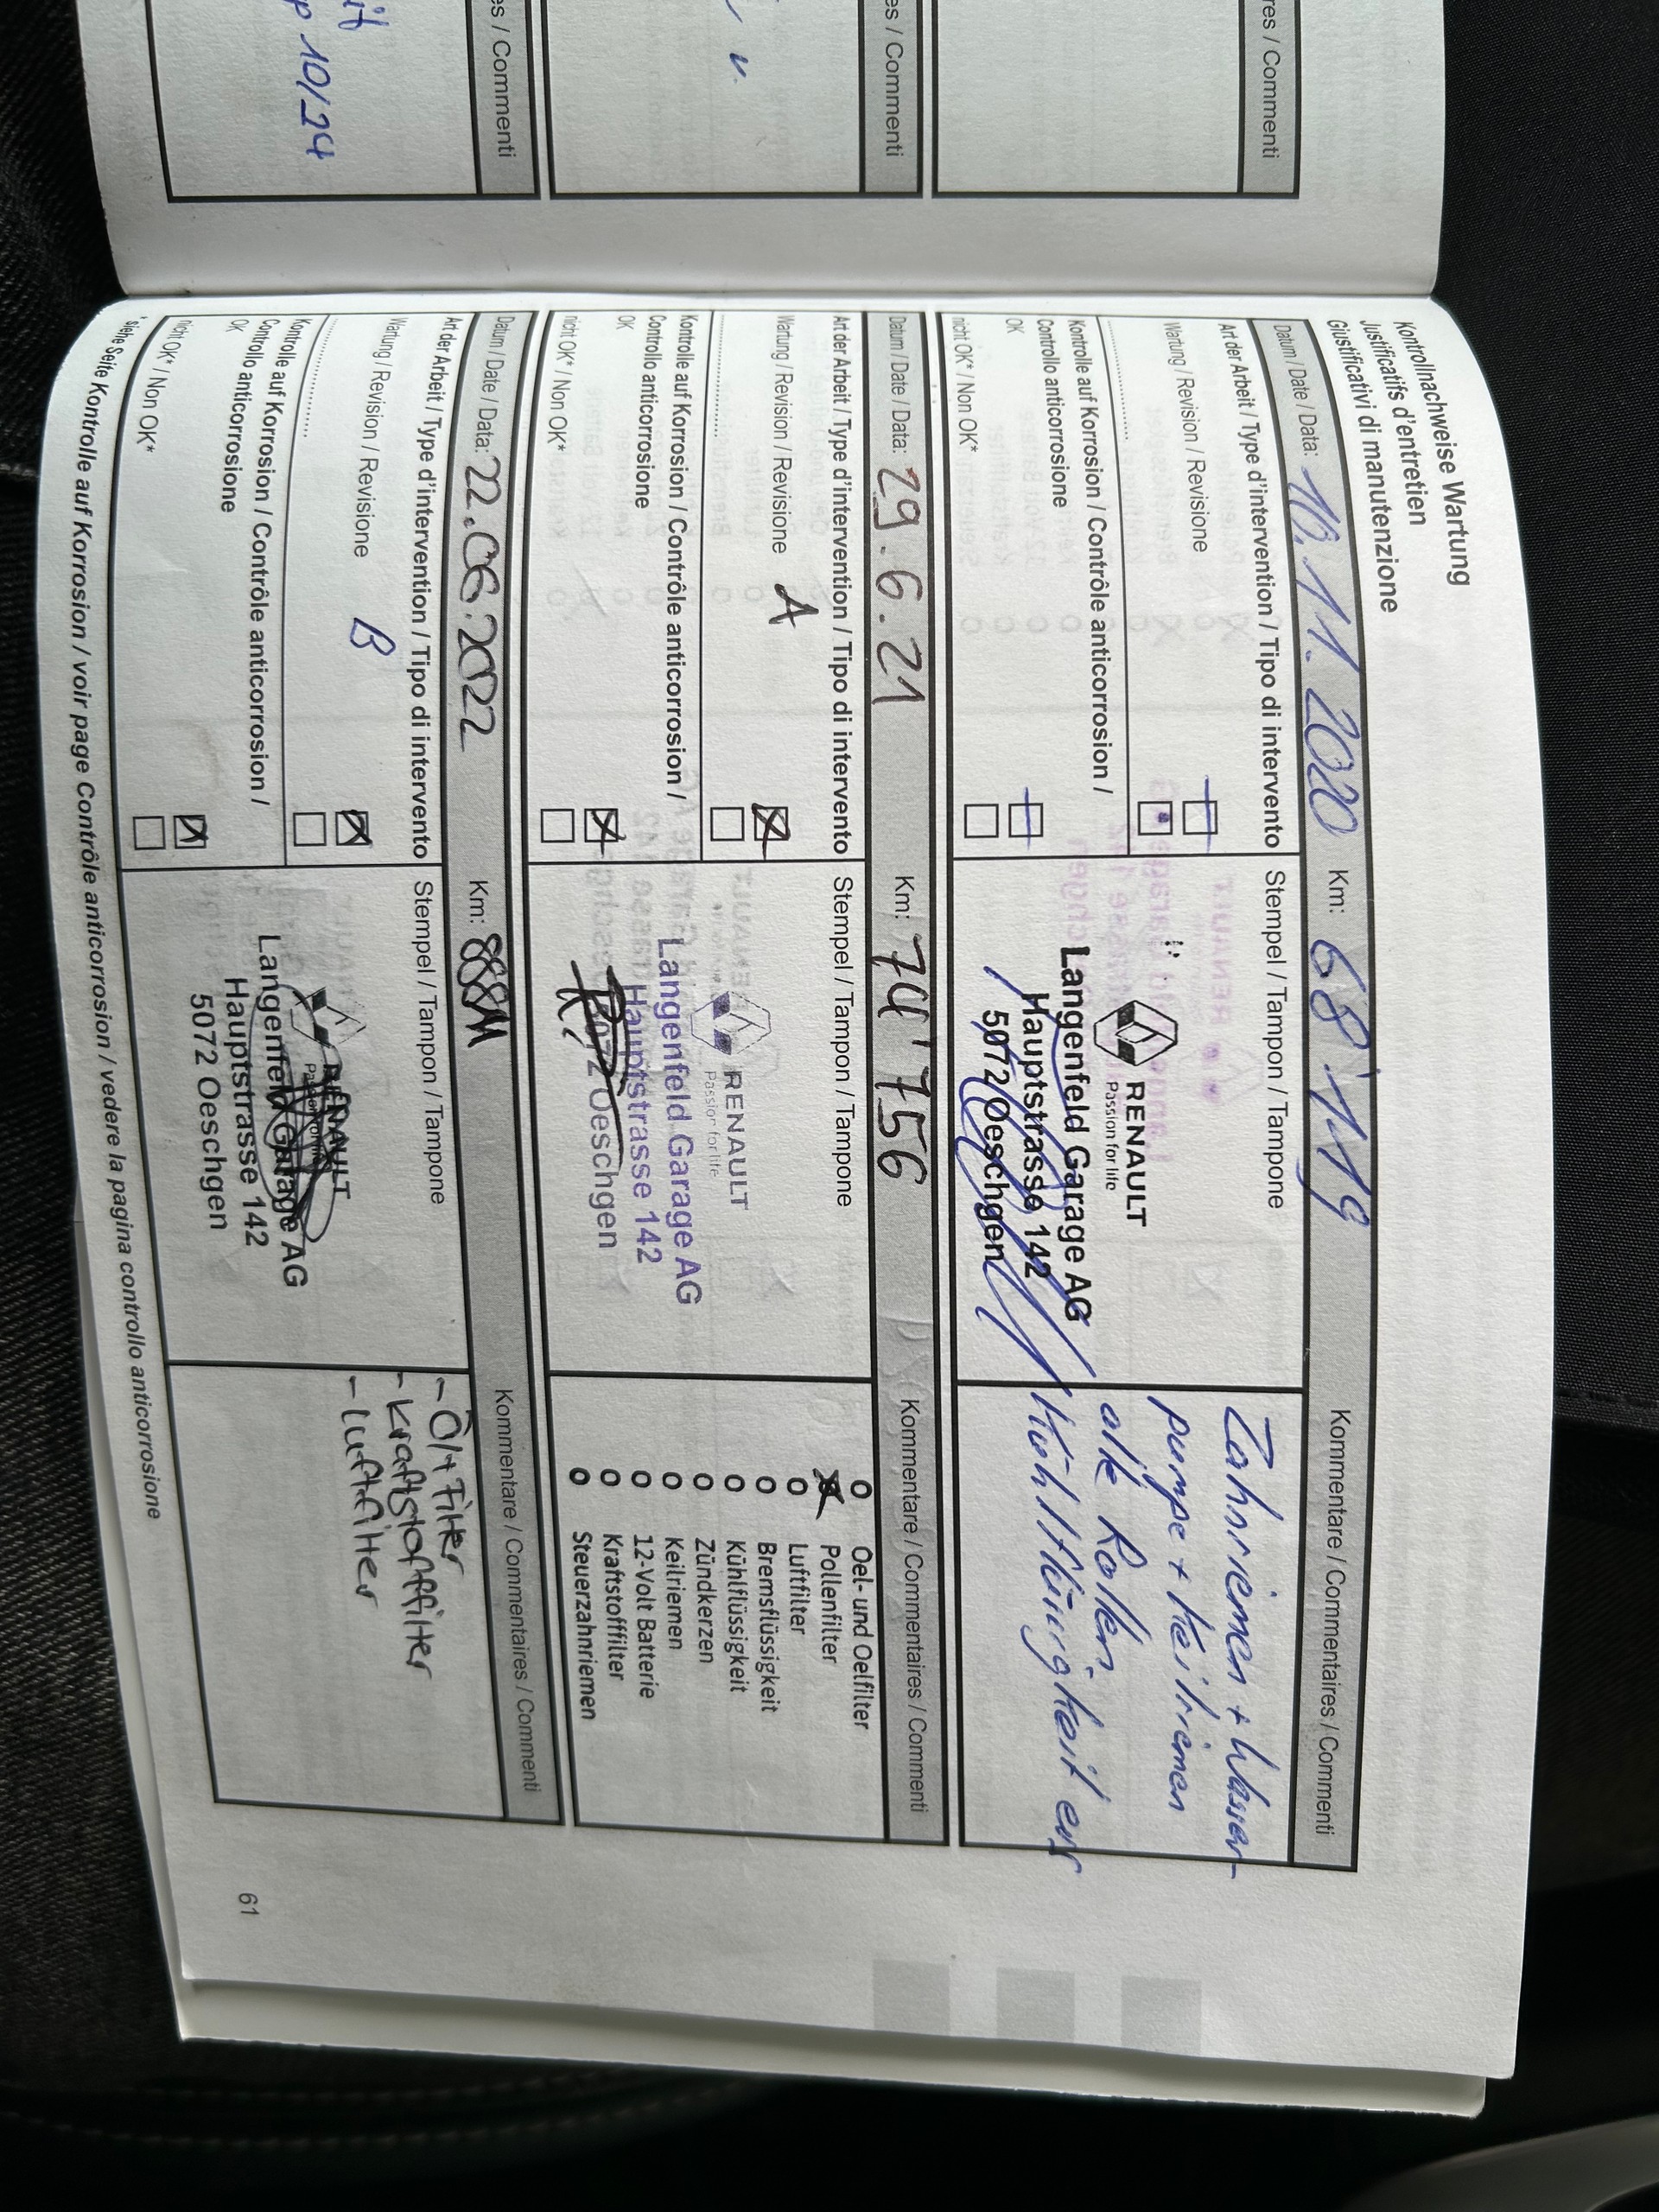 es / Commenti
es / Commenti
v.
es / Commenti
it
p 10/24
Kontrollnachweise Wartung
Justificatifs d'entretien
Giustificativi di manutenzione
Datum / Date / Data: 10.11.2020 Km: 68'119 Kommentare / Commentaires / Commenti
Art der Arbeit / Type d'intervention / Tipo di intervento
Wartung / Revision / Revisione
Kontrolle auf Korrosion / Contrôle anticorrosion /
Controllo anticorrosione
OK
nicht OK* / Non OK*
Stempel / Tampon / Tampone
RENAULT
Passion for life
Langenfeld Garage AG
Hauptstrasse 142
5072 Oeschgen
Zahnriemen + Wasser-
pumpe + Keilriemen
alle Rollen
Kühlflüssigkeit ers
Datum / Date / Data: 29.6.21 Km: 74'756 Kommentare / Commentaires / Commenti
Art der Arbeit / Type d'intervention / Tipo di intervento
Wartung / Revision / Revisione A
Kontrolle auf Korrosion / Contrôle anticorrosion /
Controllo anticorrosione
OK
nicht OK* / Non OK*
Stempel / Tampon / Tampone
RENAULT
Passion for life
Langenfeld Garage AG
Hauptstrasse 142
5072 Oeschgen
Oel- und Oelfilter
Pollenfilter
Luftfilter
Bremsflüssigkeit
Kühlflüssigkeit
Zündkerzen
Keilriemen
12-Volt Batterie
Kraftstofffilter
Steuerzahnriemen
Datum / Date / Data: 22.06.2022 Km: Kommentare / Commentaires / Commenti
Art der Arbeit / Type d'intervention / Tipo di intervento
Wartung / Revision / Revisione B
Kontrolle auf Korrosion / Contrôle anticorrosion /
Controllo anticorrosione
OK
nicht OK* / Non OK*
Stempel / Tampon / Tampone
RENAULT
Passion for life
Langenfeld Garage AG
Hauptstrasse 142
5072 Oeschgen
- Öl + Filter
- Kraftstofffilter
- Luftfilter
* siehe Seite Kontrolle auf Korrosion / voir page Contrôle anticorrosion / vedere la pagina controllo anticorrosione
61